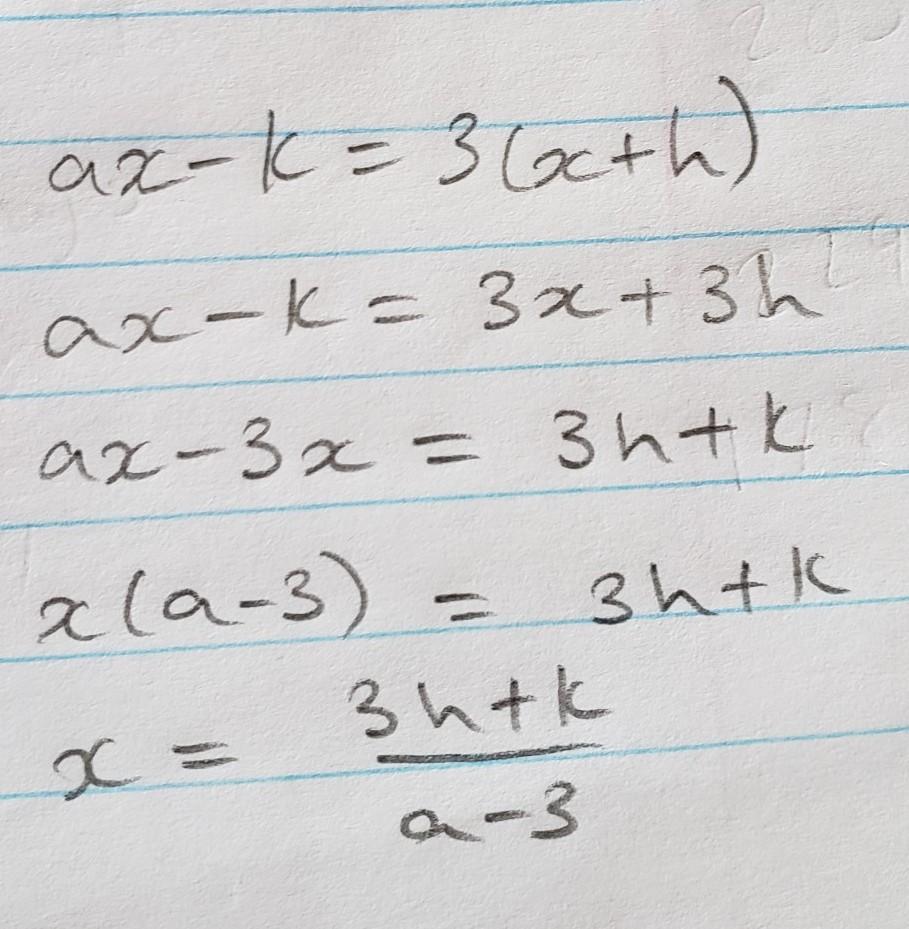 ax - k = 3(x+h)
ax - k = 3x + 3h
ax - 3x = 3h + k
x(a-3) = 3h + k
x = \frac{3h+k}{a-3}